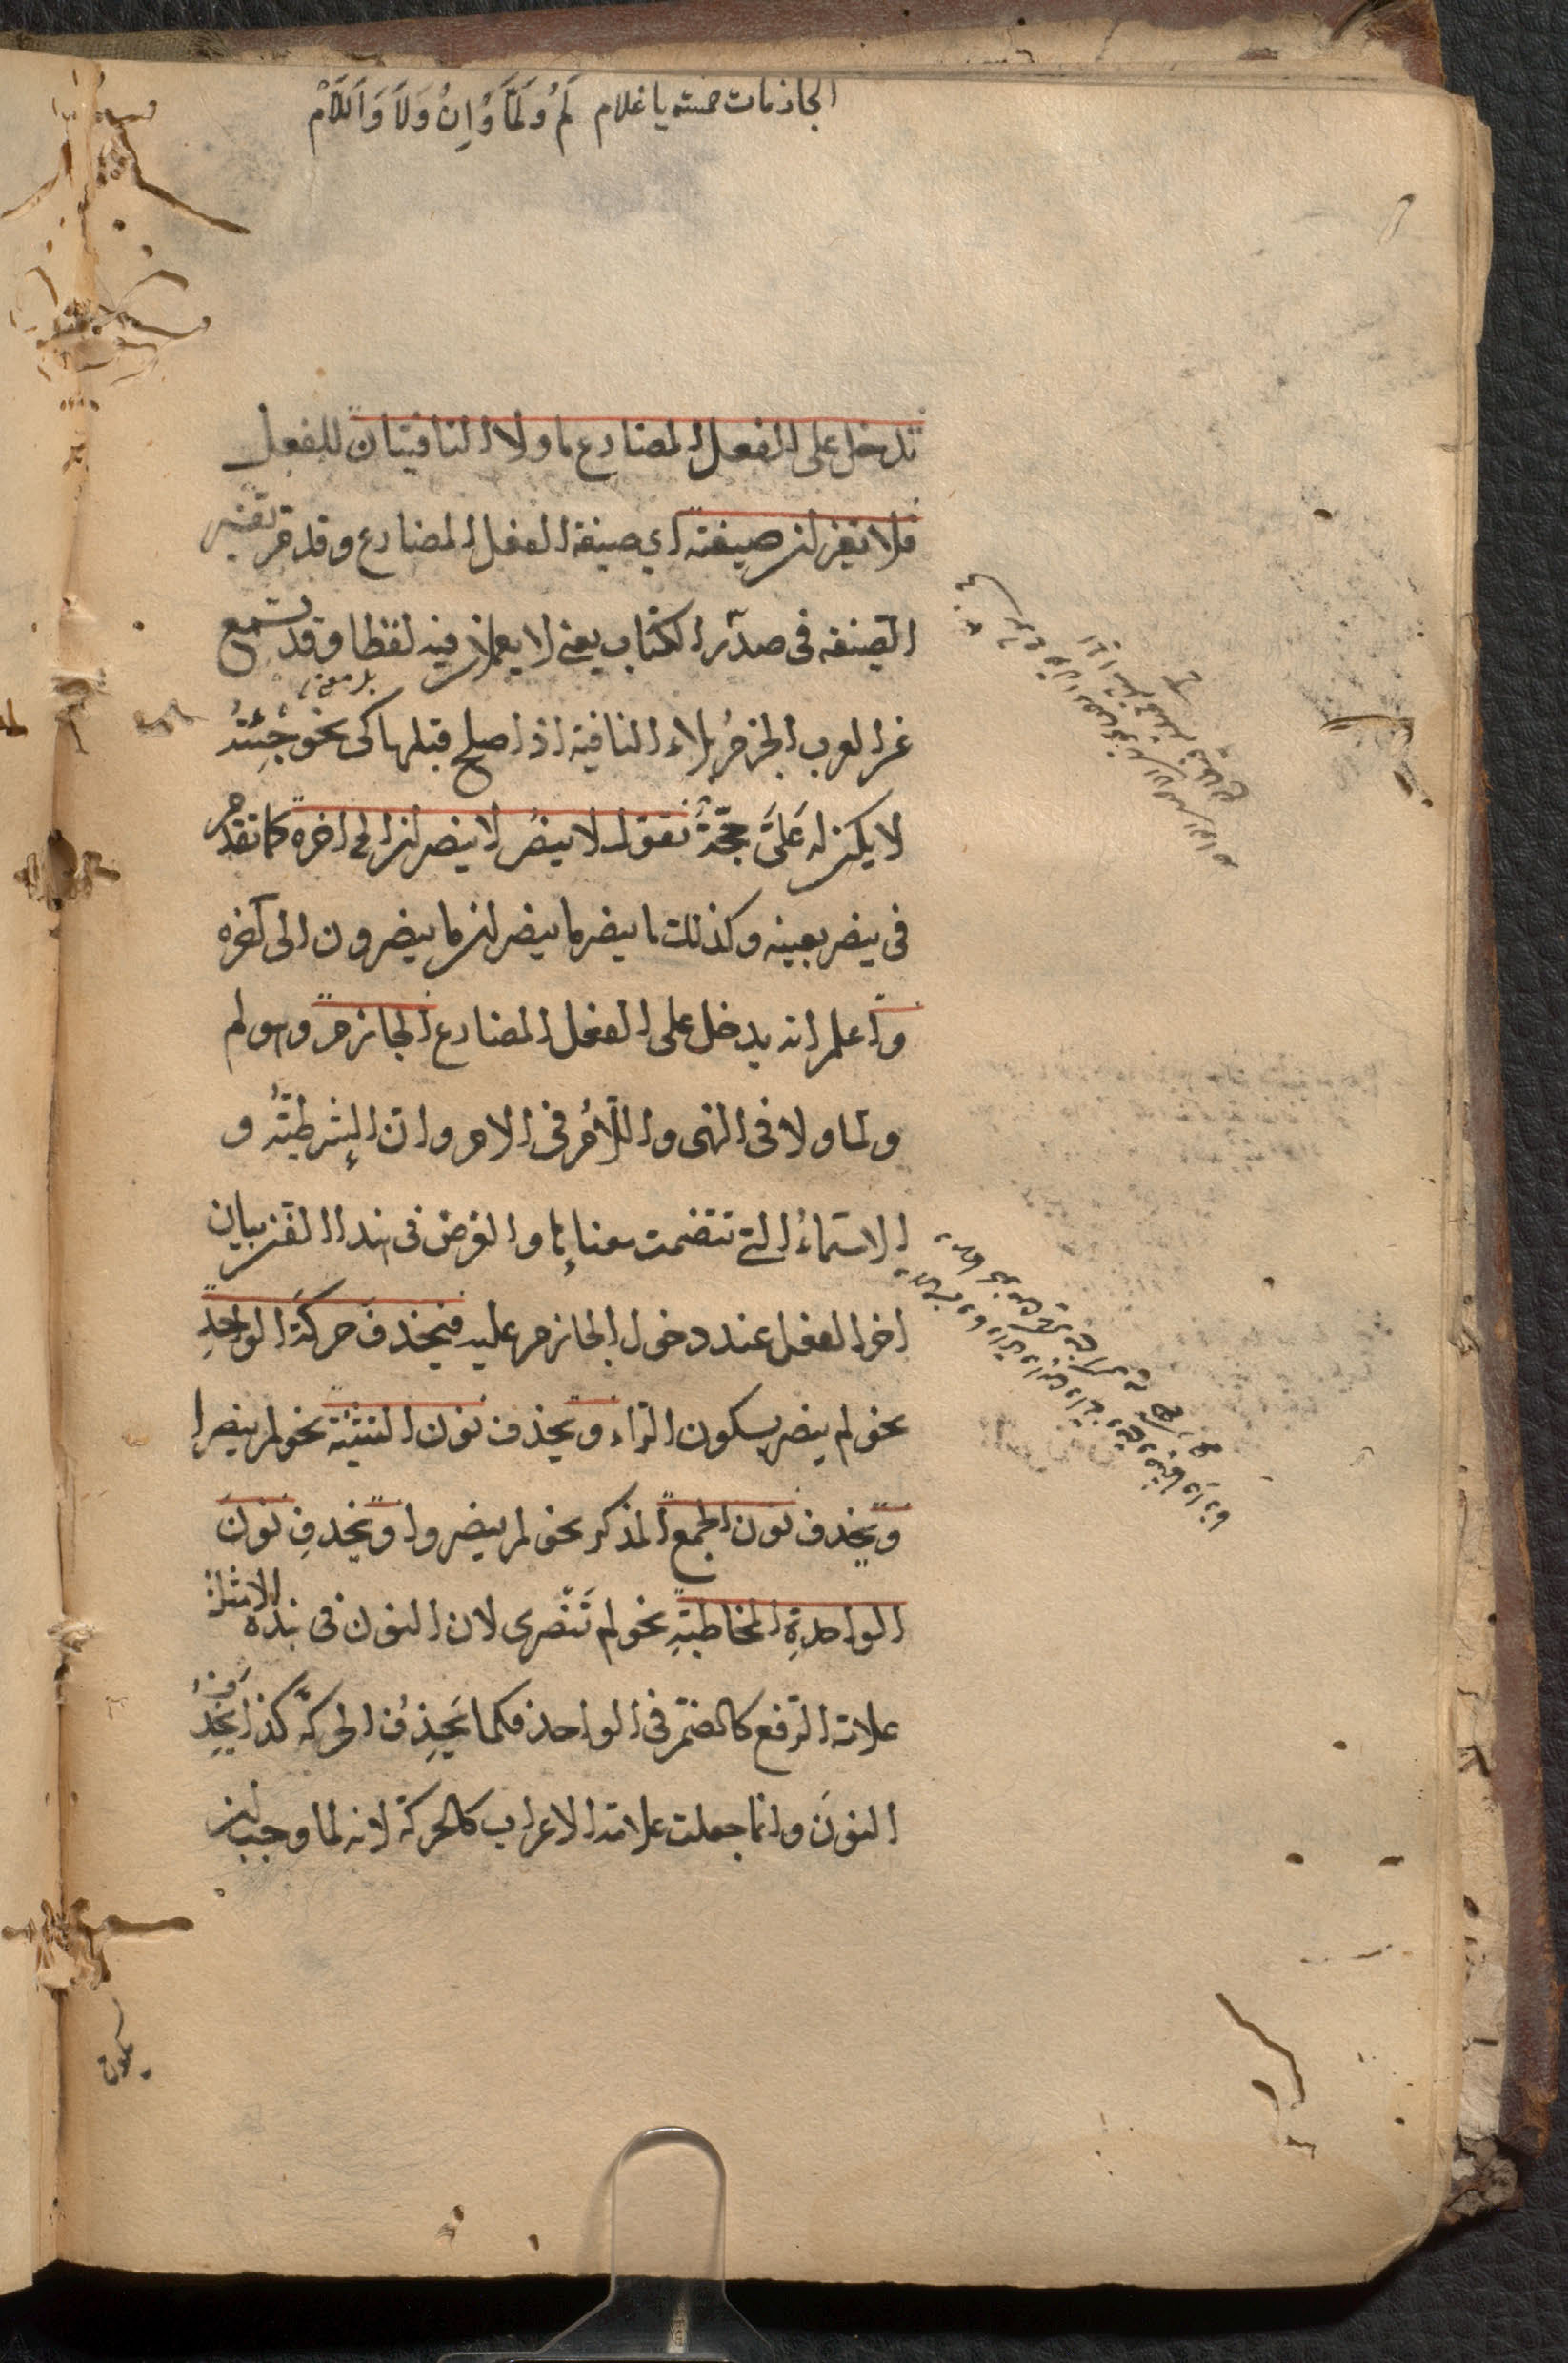 الجازمات خمسة يا غلام لَمْ وَلَمَّا وَاِنْ وَلَا وَاَللَّامْ
تدخل على الفعل المضارع ما ولا النافيتان للفعل
فلا تغيران صيغته اى صيغة الفعل المضارع وقد مر تفسير
الصيغه فى صدر الكتاب يعنى لا يعملان فيه لفظا وقد سمع
بل معنى
عن العرب الجزمُ بلاء النافية اذا صلح قبلها كى نحو جِئْتُهُ
لا يكن له عَلَىَّ حجّةٌ تقول لا ينصرُ لا ينصران الى اخره كما تقدم
فى ينصر بعينه وكذلك ما ينصر ما ينصران ما ينصرون الى آخره
واعلم انه يدخل على الفعل المضارع الجازم وهو لم
ولما ولا فى النهى واللّامُ فى الامر وان الشرطيّةُ و
الاسماءُ التى تتضمت معناها والغرض فى هذا الفن بيان
اخر الفعل عند دخول الجازم عليه فيحذفُ حركةَ الواحدِ
نحو لم ينصر بسكون الراء ويحذف نون التثنية نحو لم ينصرا
ويحذف نون الجمع المذكر نحو لم ينصروا ويحذف نونَ
الواحدةِ المخاطبةِ نحو لم تَنْصرى لان النون فى هذه الامثلة
علامة الرّفع كالضمّ فى الواحد فكما يَحذِفُ الحركة كذا يَحذِفُ
النونَ وانما جعلت علامة الاعراب كالحركة لانه لما وجب ان
يكون